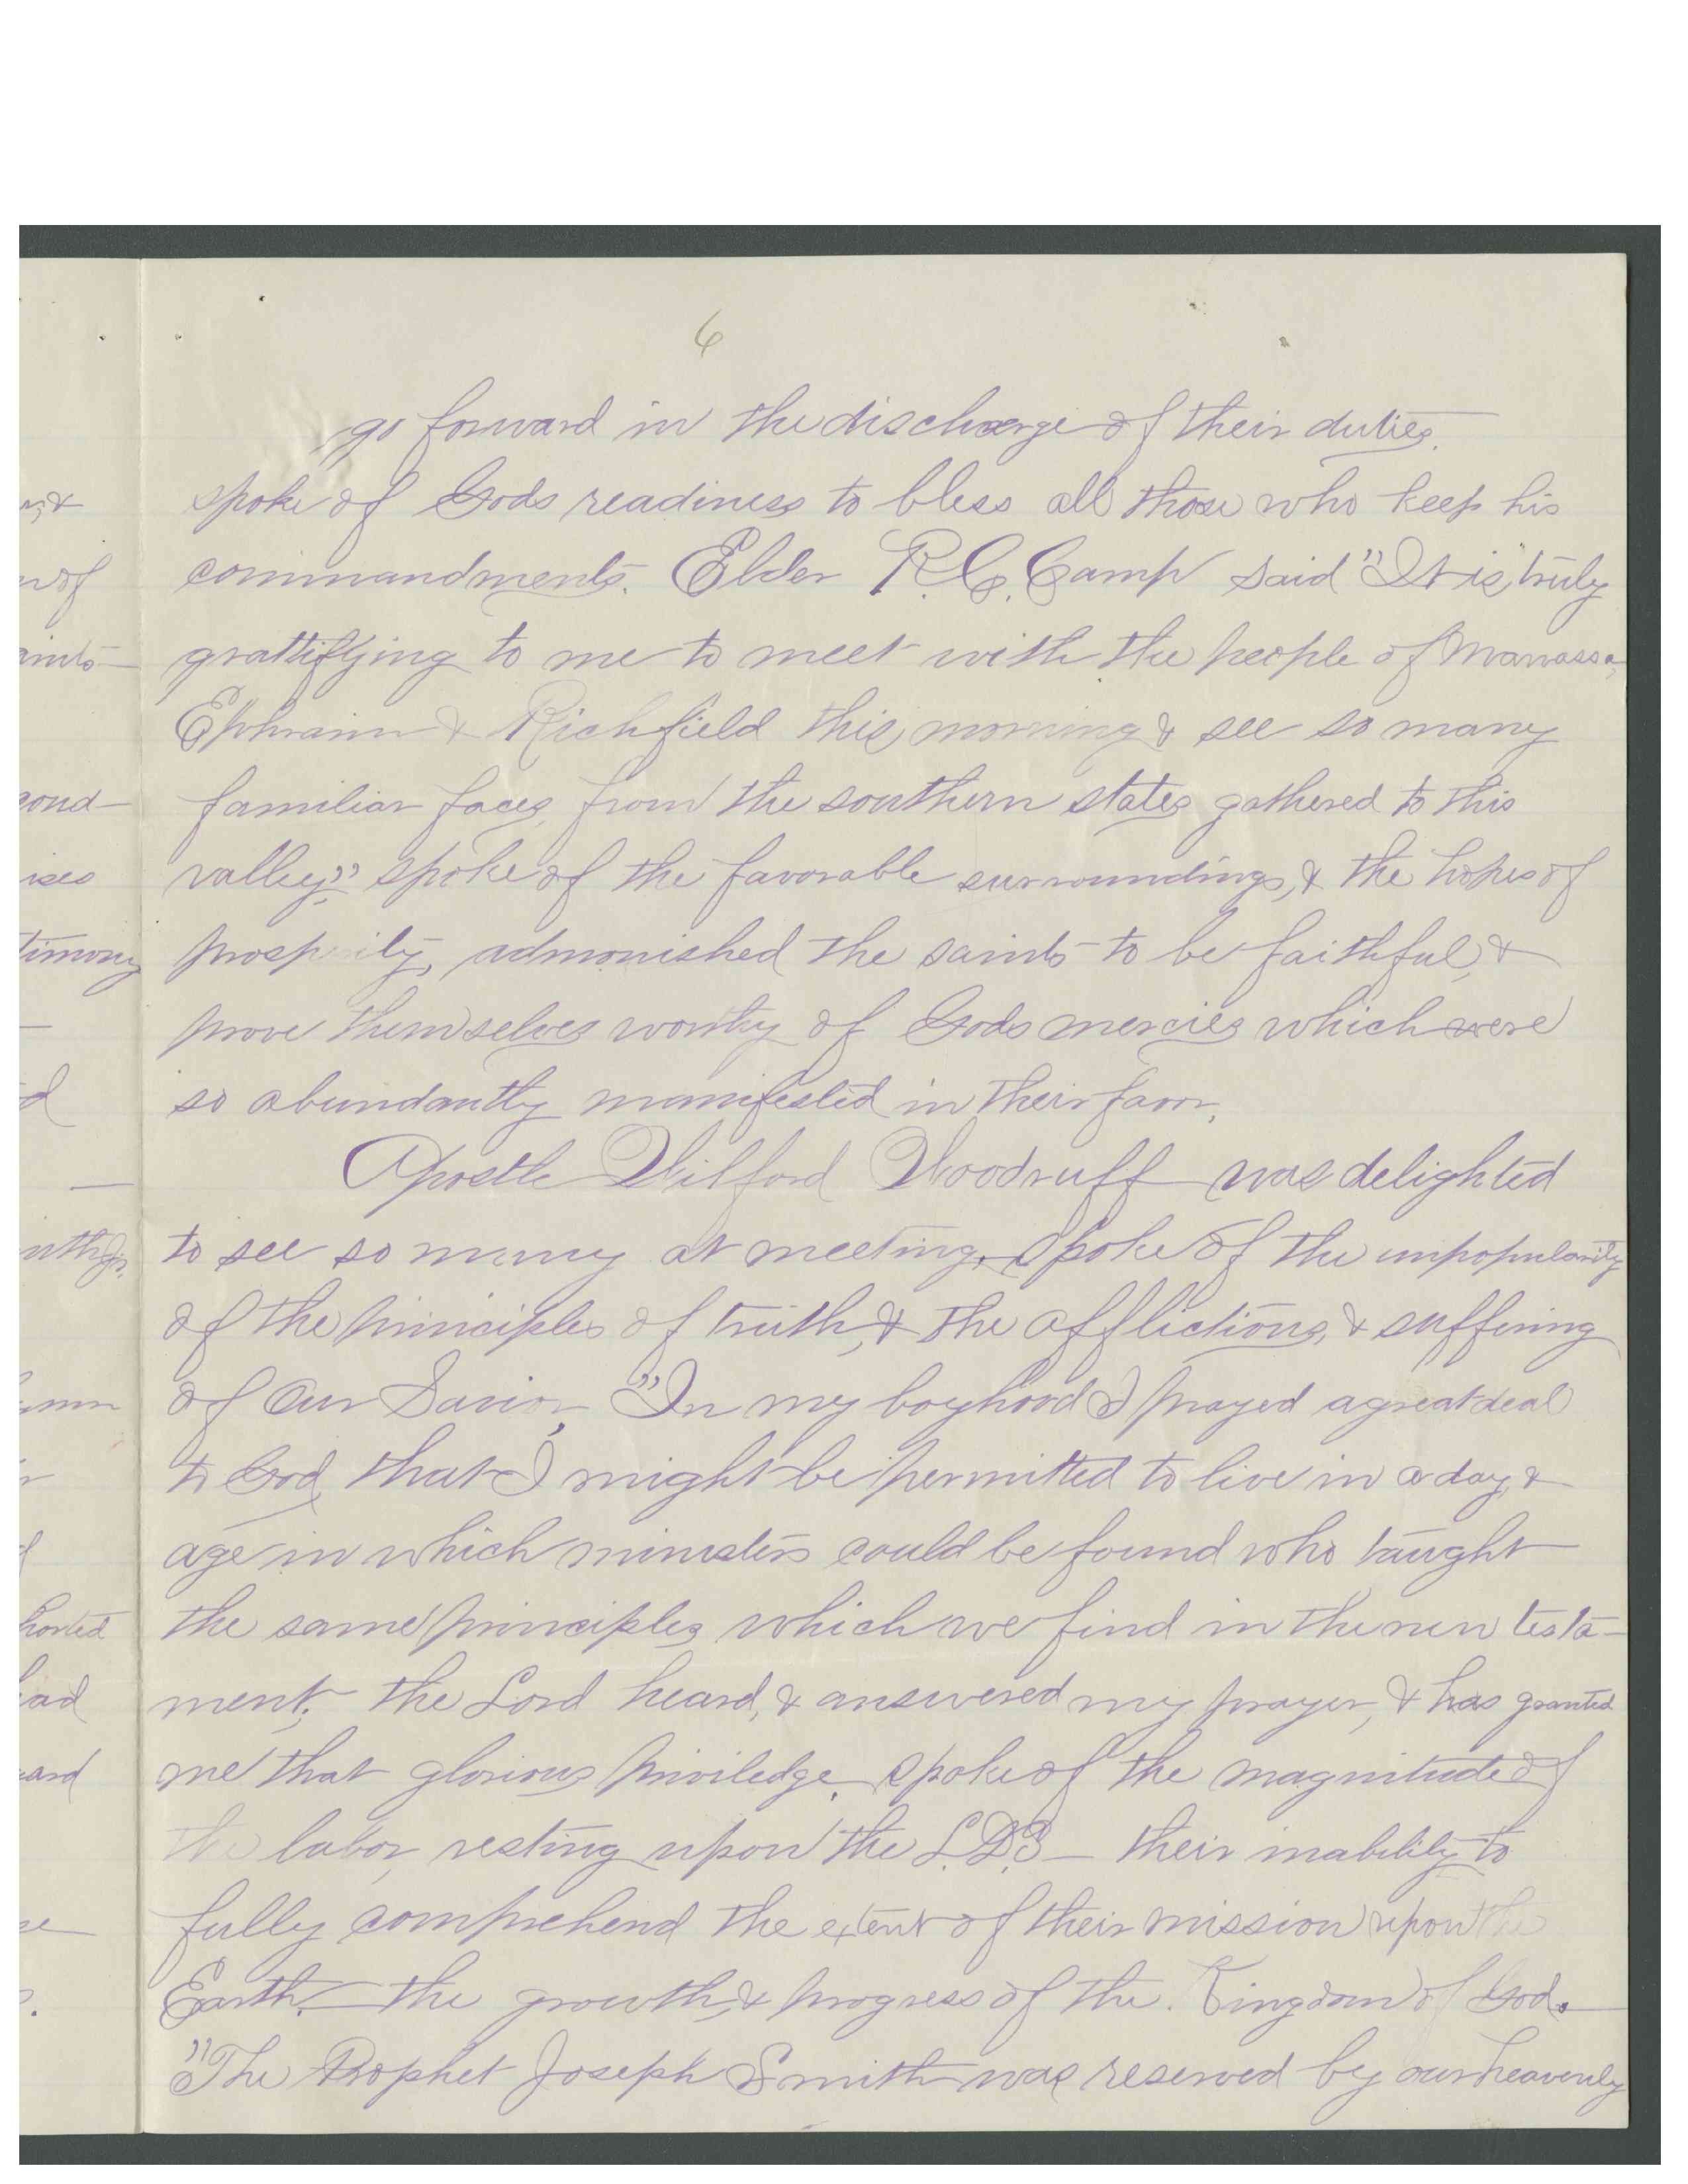 6
go forward in the discharge of their duties.
spoke of Gods readiness to bless all those who keep his
commandments. Elder R. C. Camp said "It is truly
grattifying to me to meet with the people of Manassa,
Ephraim & Richfield this morning & see so many
familiar faces from the southern states gathered to this
valley," spoke of the favorable surroundings, & the hopes of
prosp ity, admonished the saints to be faithful, &
prove themselves worthy of Gods mercies which were
so abundantly manifested in their favor,
Apostle Wilford Woodruff was delighted
to see so many at meeting, spoke of the unpopularity
of the principles of truth, & the afflictions, & suffering
of Our Savior, "In my boyhood I prayed a great deal
to God, that I might be permitted to live in a day, &
age in which ministers could be found who taught
the same principles which we find in the new testa-
ment; the Lord heard, & answered my prayer, & has granted
me that glorious priviledge. Spoke of the magnitude of
the labor, resting upon the L.D.S - their inability to
fully comprehend the extent of their mission upon the
Earth. - the growth, & progress of the. Kingdom of God.
"The Prophet Joseph Smith was reserved by our heavenly
n, &
of
aints
ond-
ises
timony
d
horted
ad
ard
se